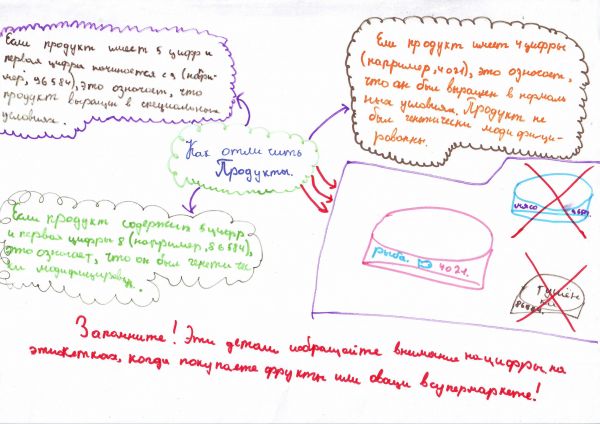 Если продукт имеет 5 цифр и
первая цифра начинается с 9 (напри-
мер, 96584), это означает, что
продукт выращен в специальных
условиях.
Если продукт имеет 4 цифры
(например, 4021), это означает,
что он был выращен в нормаль
ных условиях. Продукт не
был генетически модифици-
рованны.
Как отличить
Продукты.
Если продукт содержит 5 цифр
и первая цифры 8 (например, 86584),
это означает, что он был генети че
ски модифицирован.
мясо
рыба. 4021.
Тушён
ка
Запомните! Эти детали и обращайте внимание на цифры на
этикетках, когда покупаете фрукты или овощи в супермаркете!